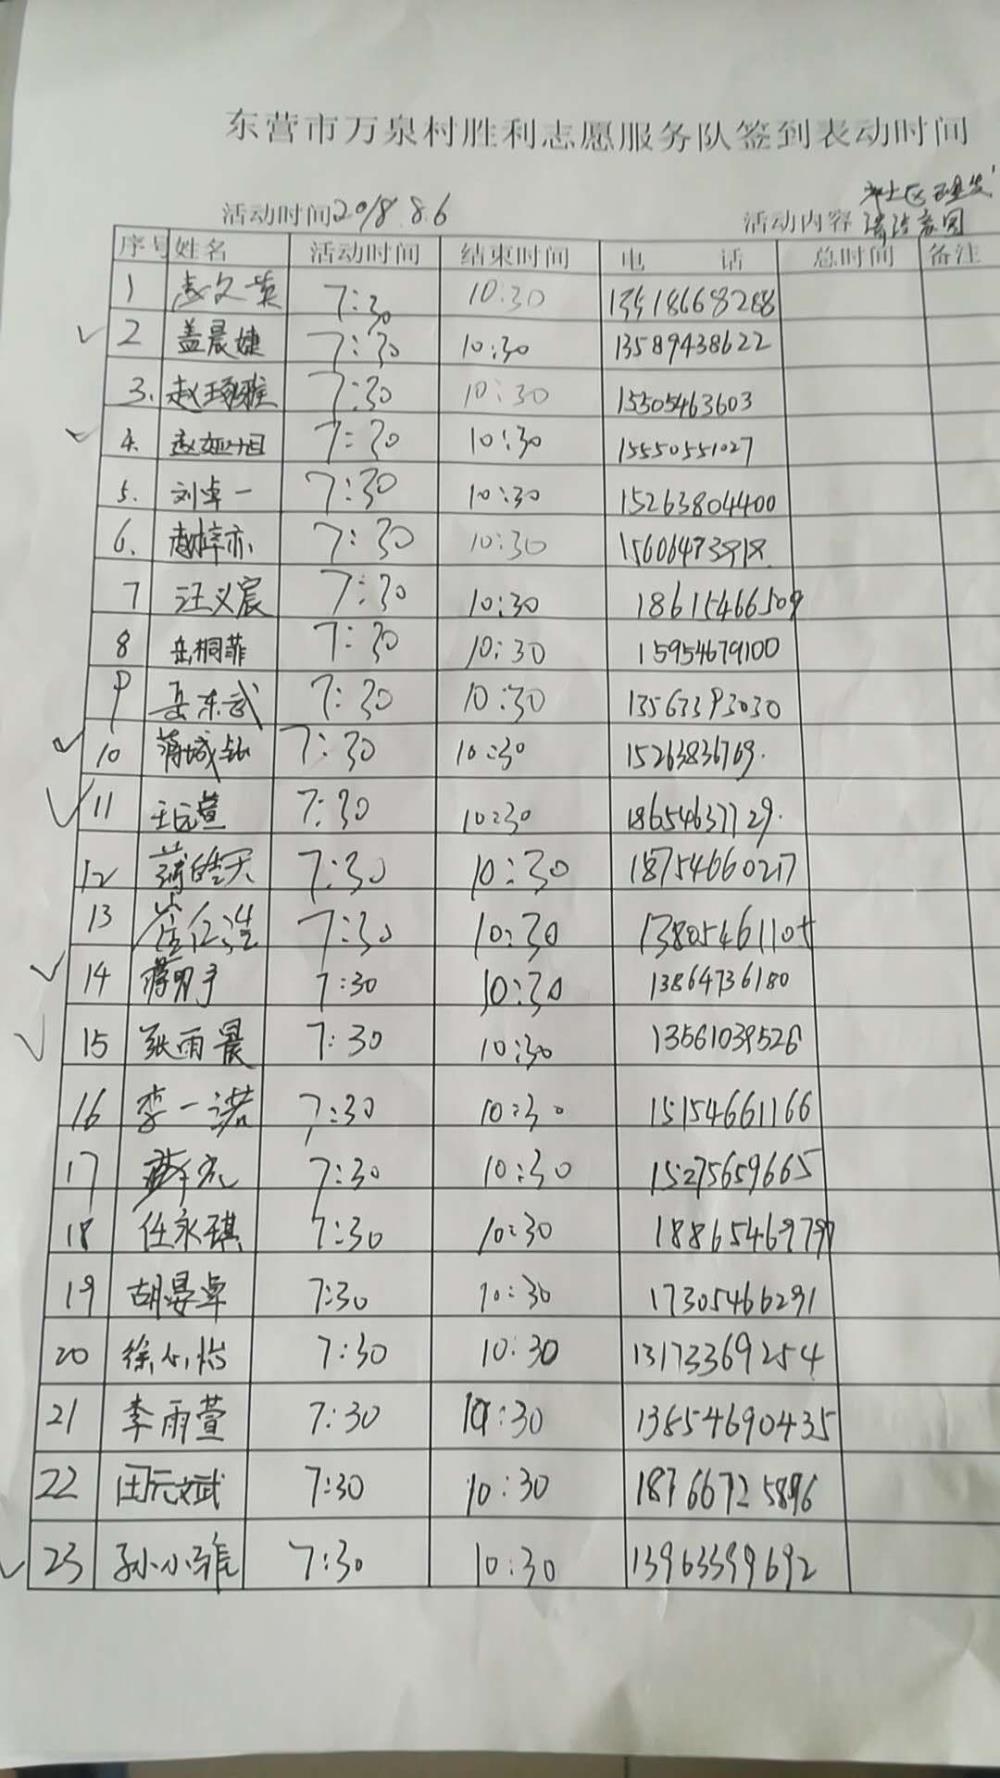 东营市万泉村胜利志愿服务队签到表动时间
活动时间2018.8.6 活动内容 清洁家园
序号 姓名 活动时间 结束时间 电 话 总时间 备注
1 7:30 10:30
2 盖晨婕 7:30 10:30 13589438622
3. 赵 7:30 10:30 15305463603
4. 赵 7:30 10:30 15550551027
5. 刘卓一 7:30 10:30 15263804400
6. 赵梓亦 7:30 10:30 15606473918
7 汪义宸 7:30 10:30 18615466509
8 岳桐菲 7:30 10:30 15954679100
9 岳东武 7:30 10:30 13563393030
10 7:30 10:30 15263836769.
11 王远萱 7:30 10:30 18654637729.
12 蒲皓天 7:30 10:30 18754660217
13 崔仁浩 7:30 10:30 13805461105
14 7:30 10:30 13864736180
15 张雨晨 7:30 10:30 13561039526
16 李一诺 7:30 10:30 15154661166
17 7:30 10:30 15275659665
18 任永琪 7:30 10:30 18865469797
19 胡晏卓 7:30 10:30 17305466291
20 徐小怡 7:30 10:30 13173369254
21 李雨萱 7:30 10:30 13654690435
22 田元斌 7:30 10:30 18766725896
23 孙小雅 7:30 10:30 13963399692